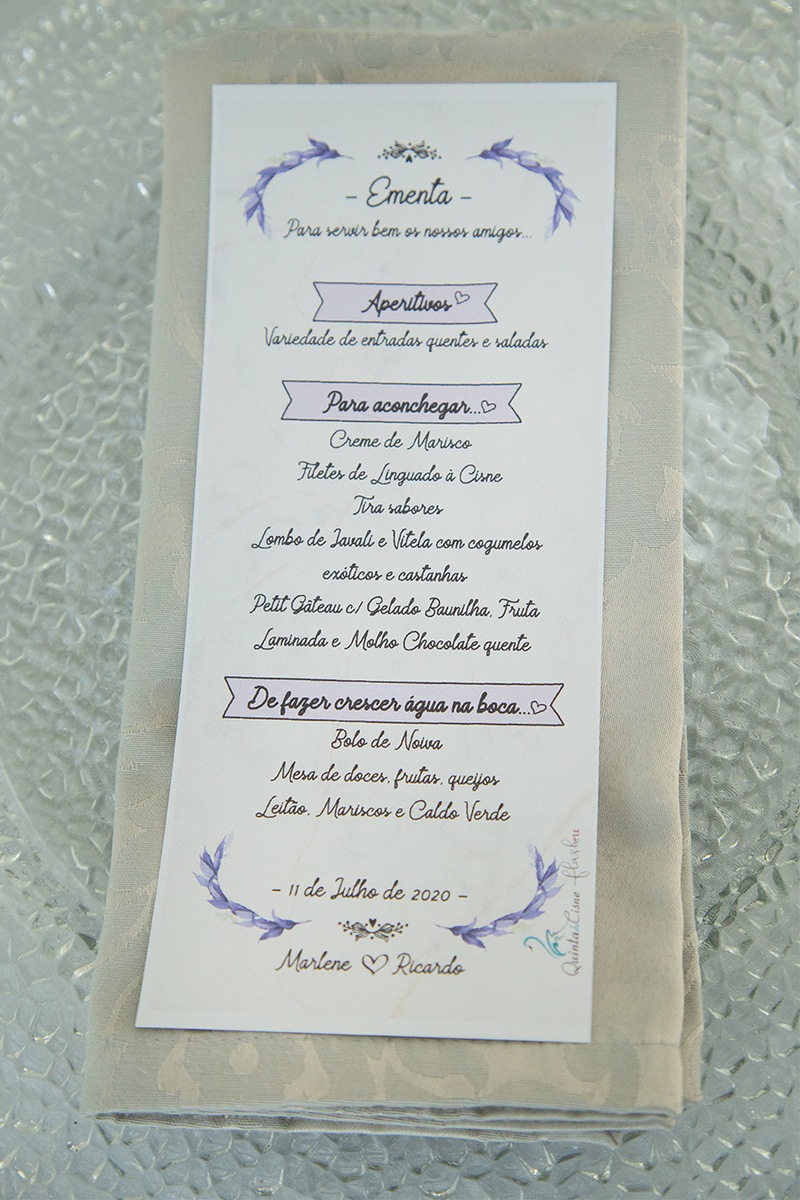 - Ementa -
Para servir bem os nossos amigos...
Aperitivos
Variedade de entradas quentes e saladas
Para aconchegar...
Creme de Marisco
Filetes de Linguado à Cisne
Tira sabores
Lombo de Javali e Vitela com cogumelos
exóticos e castanhas
Petit Gâteau c/ Gelado Baunilha, Fruta
Laminada e Molho Chocolate quente
De fazer crescer água na boca...
Bolo de Noiva
Mesa de doces, frutas, queijos
Leitão, Mariscos e Caldo Verde
- 11 de Julho de 2020 -
Marlene Ricardo
Quinta do Cisne